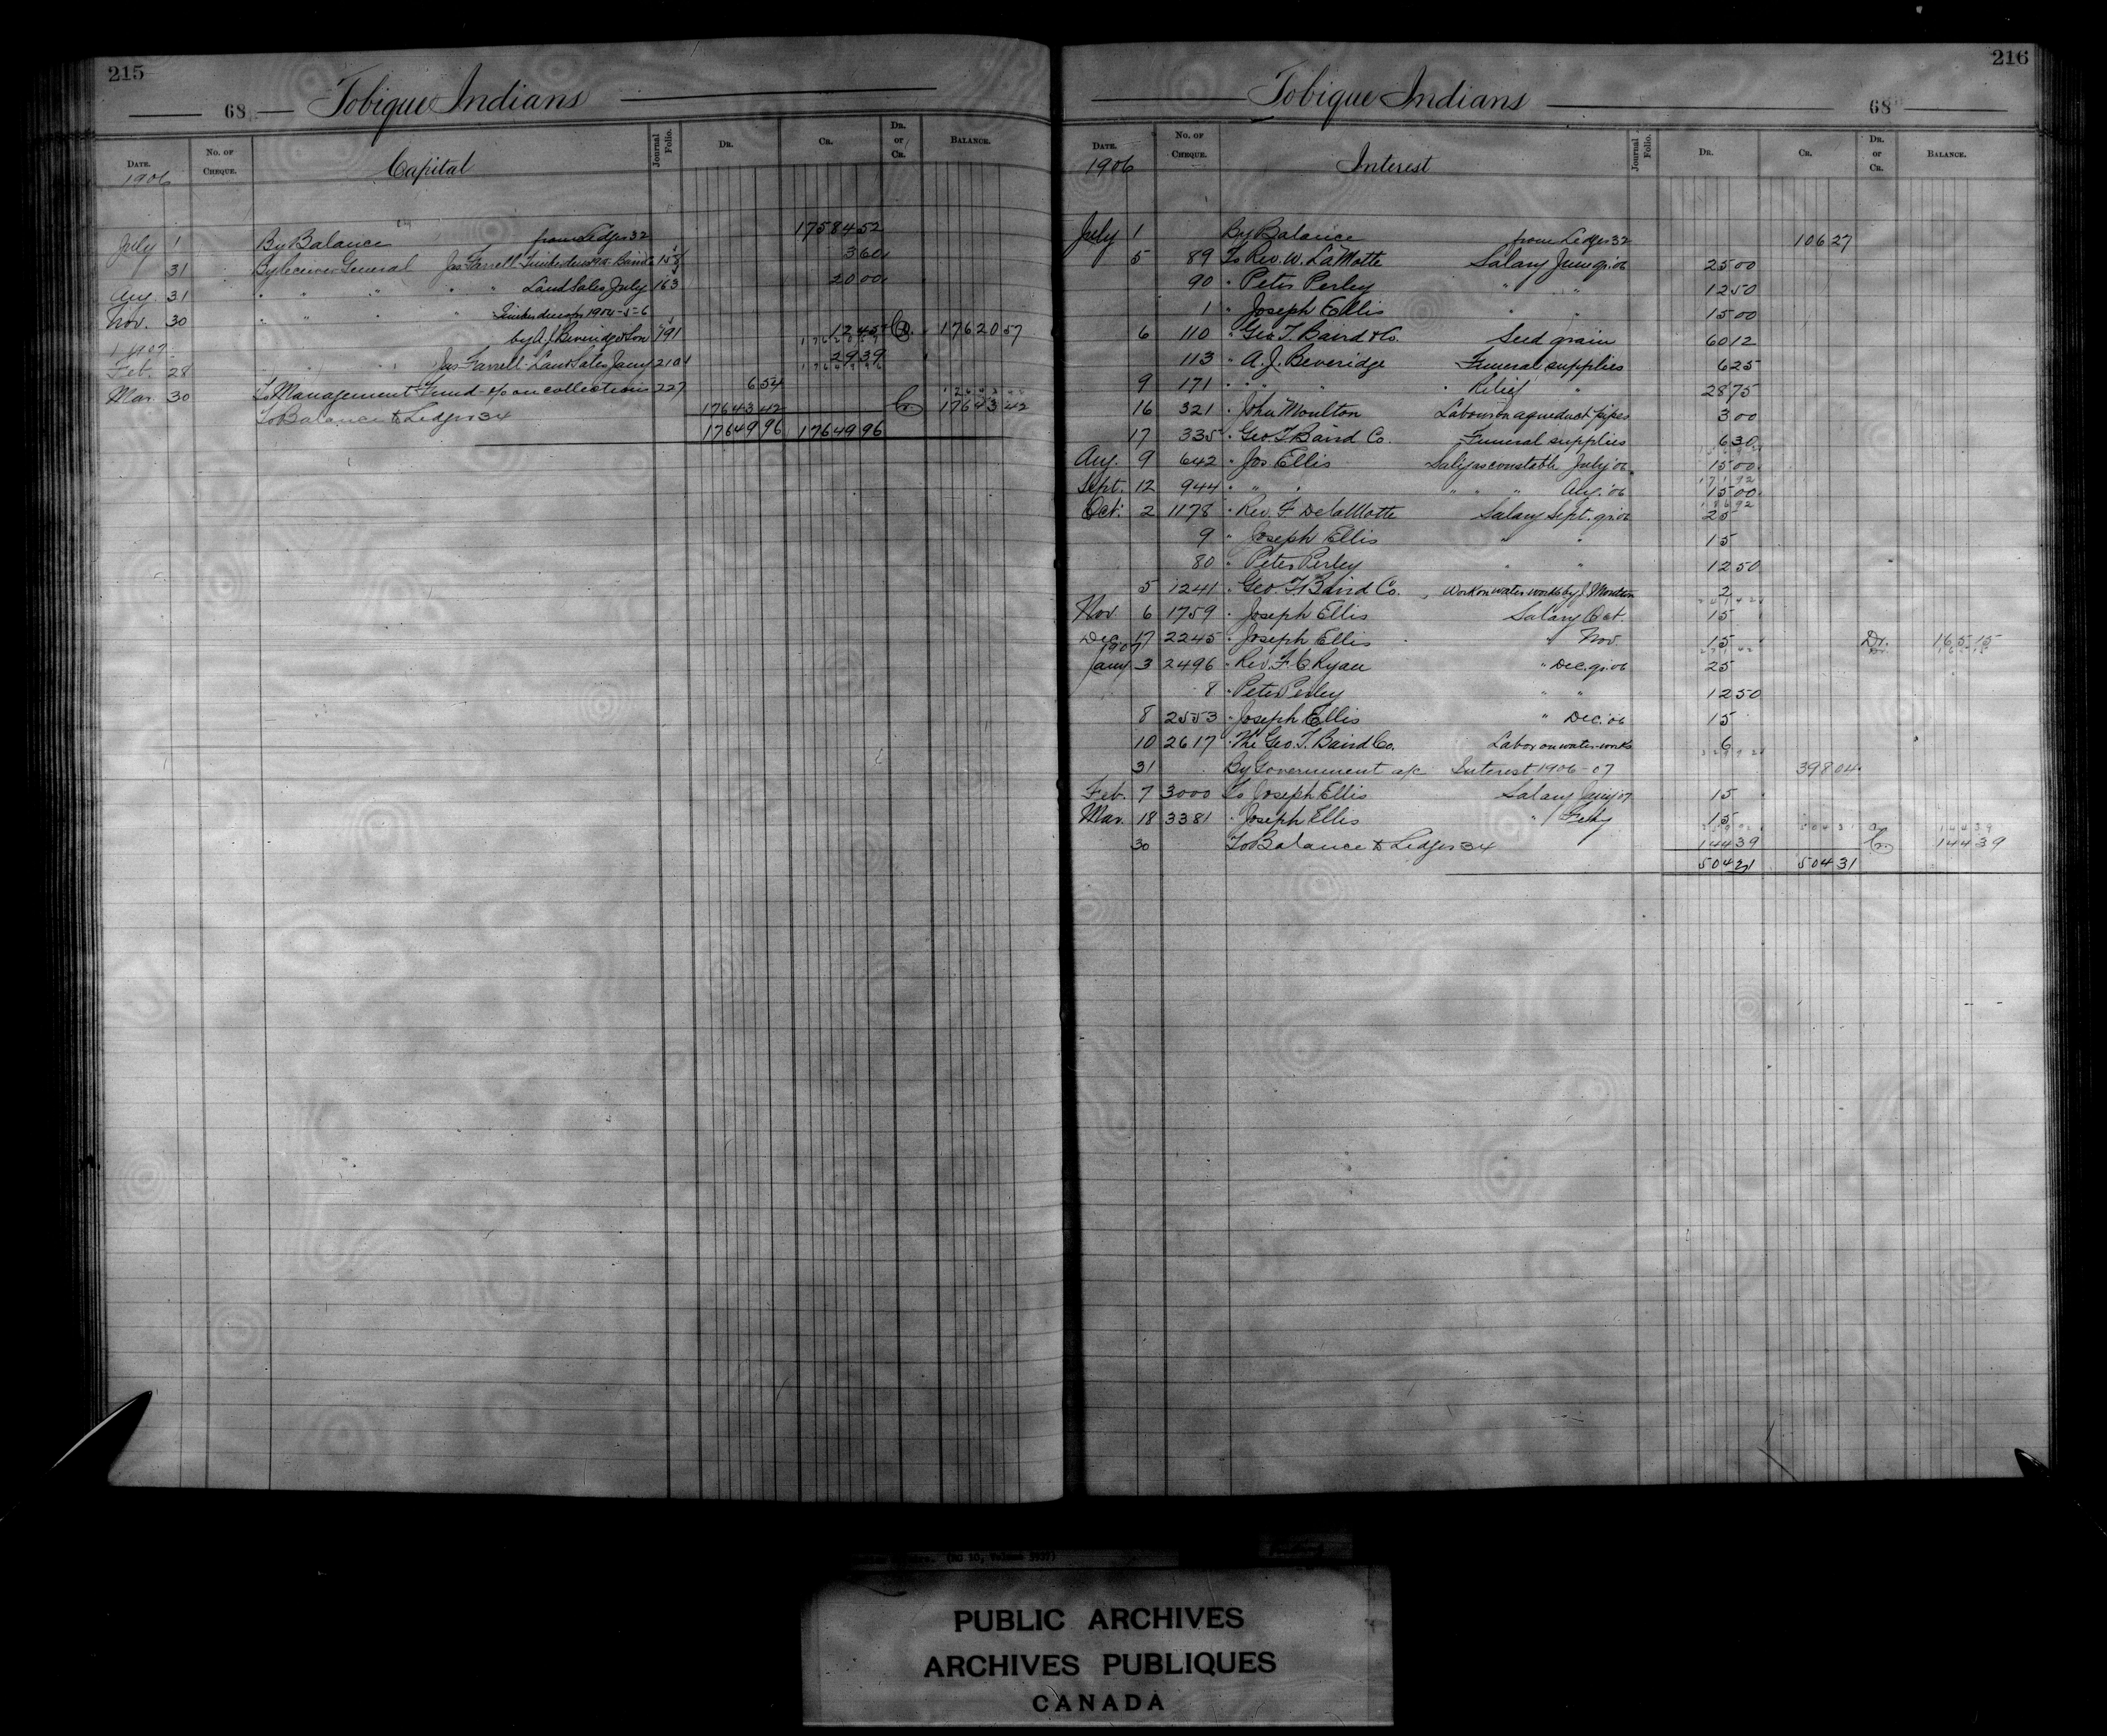 215
68 Tobique Indians
DATE. No. OF CHEQUE. Capital Journal Folio. DR. CR. DR. or CR. BALANCE.
1906
July 1 By Balance from Ledger 32 17584 52
31 By Receiver General Jas Farrell 3 60
Aug. 31 " " " " " Land Sales July 163 20 00
Nov. 30 " " " " Timber dues 1904-5-6
by A. J. Beveridge & Son 191 12 45 Cr. 17620 57
1907
Feb. 28 " " " Jas Farrell Land Sales Jany 210 29 39
Mar. 30 To Management Fund on collections 227 6 54
To Balance to Ledger 34 17643 42 Cr. 17643 42
17649 96 17649 96
216
Tobique Indians 68
DATE. No. OF CHEQUE. Interest Journal Folio. DR. CR. DR. or CR. BALANCE.
1906
July 1 By Balance from Ledger 32 106 27
5 89 To Rev. W. LaMotte Salary June qr. 06 25 00
90 " Peter Perley " " 12 50
1 " Joseph Ellis " " 15 00
6 110 " Geo. T. Baird & Co. Seed grain 60 12
113 " A. J. Beveridge Funeral supplies 6 25
9 171 " " " Relief " 28 75
16 321 " John Moulton Labour on aqueduct pipes 3 00
17 335 " Geo T Baird Co. Funeral supplies 6 30
Aug. 9 642 " Jos Ellis Saly as constable July '06 15 00
Sept. 12 944 " " " " " " Aug. '06 15 00
Oct. 2 1178 " Rev. F DelaMotte Salary Sept. qr. 06 25
9 " Joseph Ellis " " 15
80 " Peter Perley " " 12 50
5 1241 " Geo. T. Baird Co. Work on water works by J. Moulton 2
Nov 6 1759 " Joseph Ellis Salary Oct. 15
Dec. 17 2245 " Joseph Ellis " Nov 15 Dr. 165 15
1907
Jany 3 2496 " Rev. F. C. Ryan " Dec. qr. 06 25
8 " Peter Perley " " 12 50
8 2553 " Joseph Ellis " Dec. '06 15
10 2617 " The Geo. T. Baird Co. Labor on water-works 6
31 By Government a/c Interest 1906-07 398 04
Feb. 7 3000 To Joseph Ellis Salary Jany 07 15
Mar. 18 3381 " Joseph Ellis " Feby 15
30 To Balance to Ledger 34 144 39 Cr. 144 39
504 31 504 31
PUBLIC ARCHIVES
ARCHIVES PUBLIQUES
CANADA